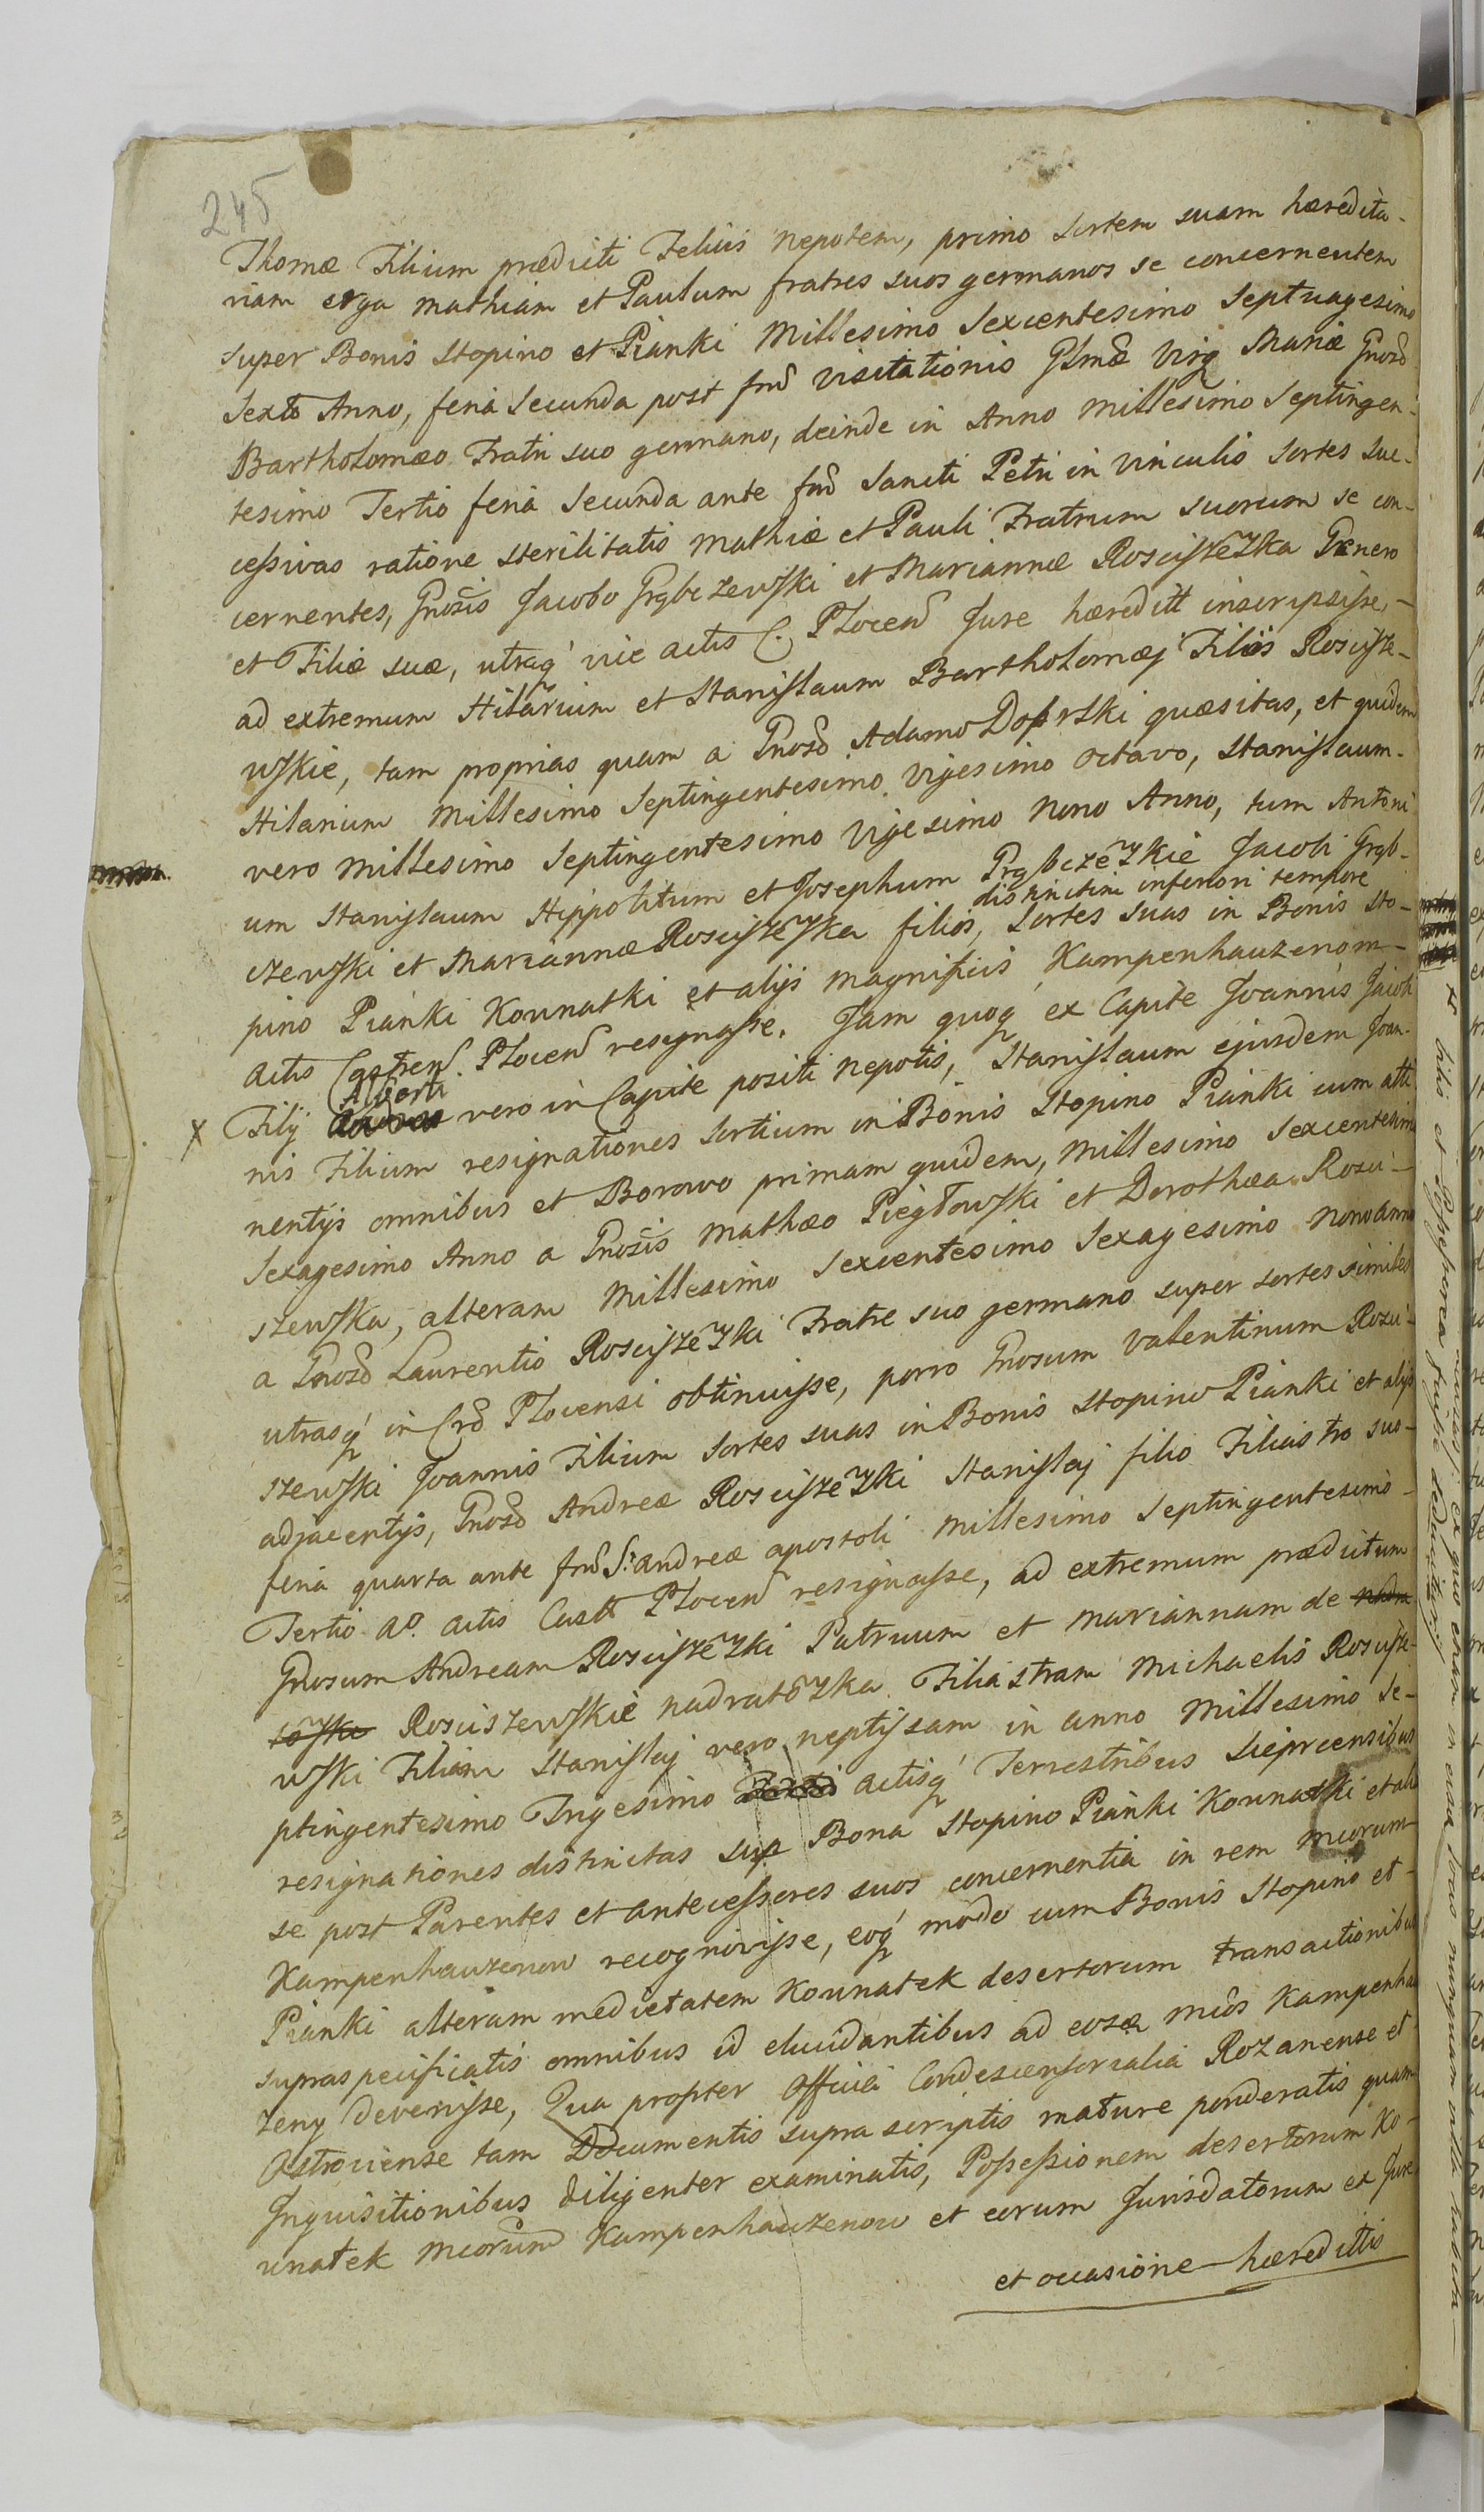 245
Thomæ Filium prædicti Felicis nepotem, primo sortem suam hæredita-
riam erga Mathiam et Paulum fratres suos germanos se concernentem
super Bonis Stopino et Pianki Millesimo Sexcentesimo Septuagesimo
Sexto Anno, feria Secunda post fnd Visitationis Glmæ Virg Mariæ Gnoso
Bartholomæo Fratri suo germano, deinde in Anno Millesimo Septingen-
tesimo Tertio feria Secunda ante fnd Sancti Petri in Vinculis Sortes Suc-
cessivas ratione sterilitatis Mathiæ et Pauli Fratrum suorum se con-
cernentes, Gnosis Jacobo Grąbczewski et Mariannæ Rosciszewska Genero
et Filiæ suæ, utraq vice actis C. Plocen Jure hæreditt inscripsisse,-
ad extremum Hilarium et Stanislaum Bartholomæj Filios Roscisze-
wskie, tam proprias quam a Gnoso Adamo Dobrski quæsitas, et quidem
Hilarium Millesimo Septingentesimo Vigesimo octavo, Stanislaum-
vero Millesimo Septingentesimo Vigesimo Nono Anno, tum Antoni
um Stanislaum Hippolitum et Josephum Grąbczewskie Jacobi Grąb-
distinctim inferiori tempore
czewski et Mariannæ Rosciszewska filios, Sortes suas in Bonis Sto-
pino Pianki Kownatki et alijs Magnificis Kampenhauzenom-
actis Castren. Plocen resignasse. Jam quoq ex Capite Joannis Jacobi
Alberti
x Filij vero in Capite positi nepotis, Stanislaum ejusdem Joan-
nis Filium resignationes Sortium in Bonis Stopino Pianki cum atti
nentijs omnibus et Borowo primam quidem, Millesimo Sexcentesimo
Sexagesimo Anno a Gnosis Mathæo Pięgłowski et Dorothea Rosci-
szewska, alteram Millesimo Sexcentesimo Sexagesimo Nono Anno
a Gnoso Laurentio Rosciszewski Fratre suo germano super sortes similes
utrasq in Cro Plocensi obtinuisse, porro Gnosum Valentinum Rosci-
szewski Joannis Filium Sortes suas in Bonis Stopino Pianki et alijs
adjacentijs, Gnoso Andreæ Rosciszewski Stanislaj filio Filiastro suo-
feria quarta ante fnd S. Andreæ apostoli Millesimo Septingentesimo-
Tertio Ao. actis Castt Plocen resignasse, ad extremum prædictum
Gnosum Andream Rosciszewski Patruum et Mariannam de
Rosciszewskie nadratowska Filiastram Michaelis Roscisze-
wski Filiam Stanislaj vero neptijsam in anno Millesimo Se-
ptingentesimo Trigesimo actisq Terrestribus Sieprcensibus
resignationes distinctas sup Bona Stopino Pianki Kownatki et alia
se post Parentes et antecessores suos concernentia in rem Mcorum-
Kampenhauzenow recognovisse, eoq modo cum Bonis Stopino et-
Pianki alteram medietatem Kownatek desertorum transactionibus
supraspecificatis omnibus id elucidantibus ad eosd Mcos Kampenhau
zeny devenisse, Qua propter Officia Condescensorialia Rozanense et
Ostroviense tam Documentis supra scriptis mature ponderatis quam
Inquisitionibus diligenter examinatis, Possessionem desertorum Ko-
wnatek Mcorum Kampenhauzenow et eorum Jurisdatorum ex Jure
et occasione hæredittis